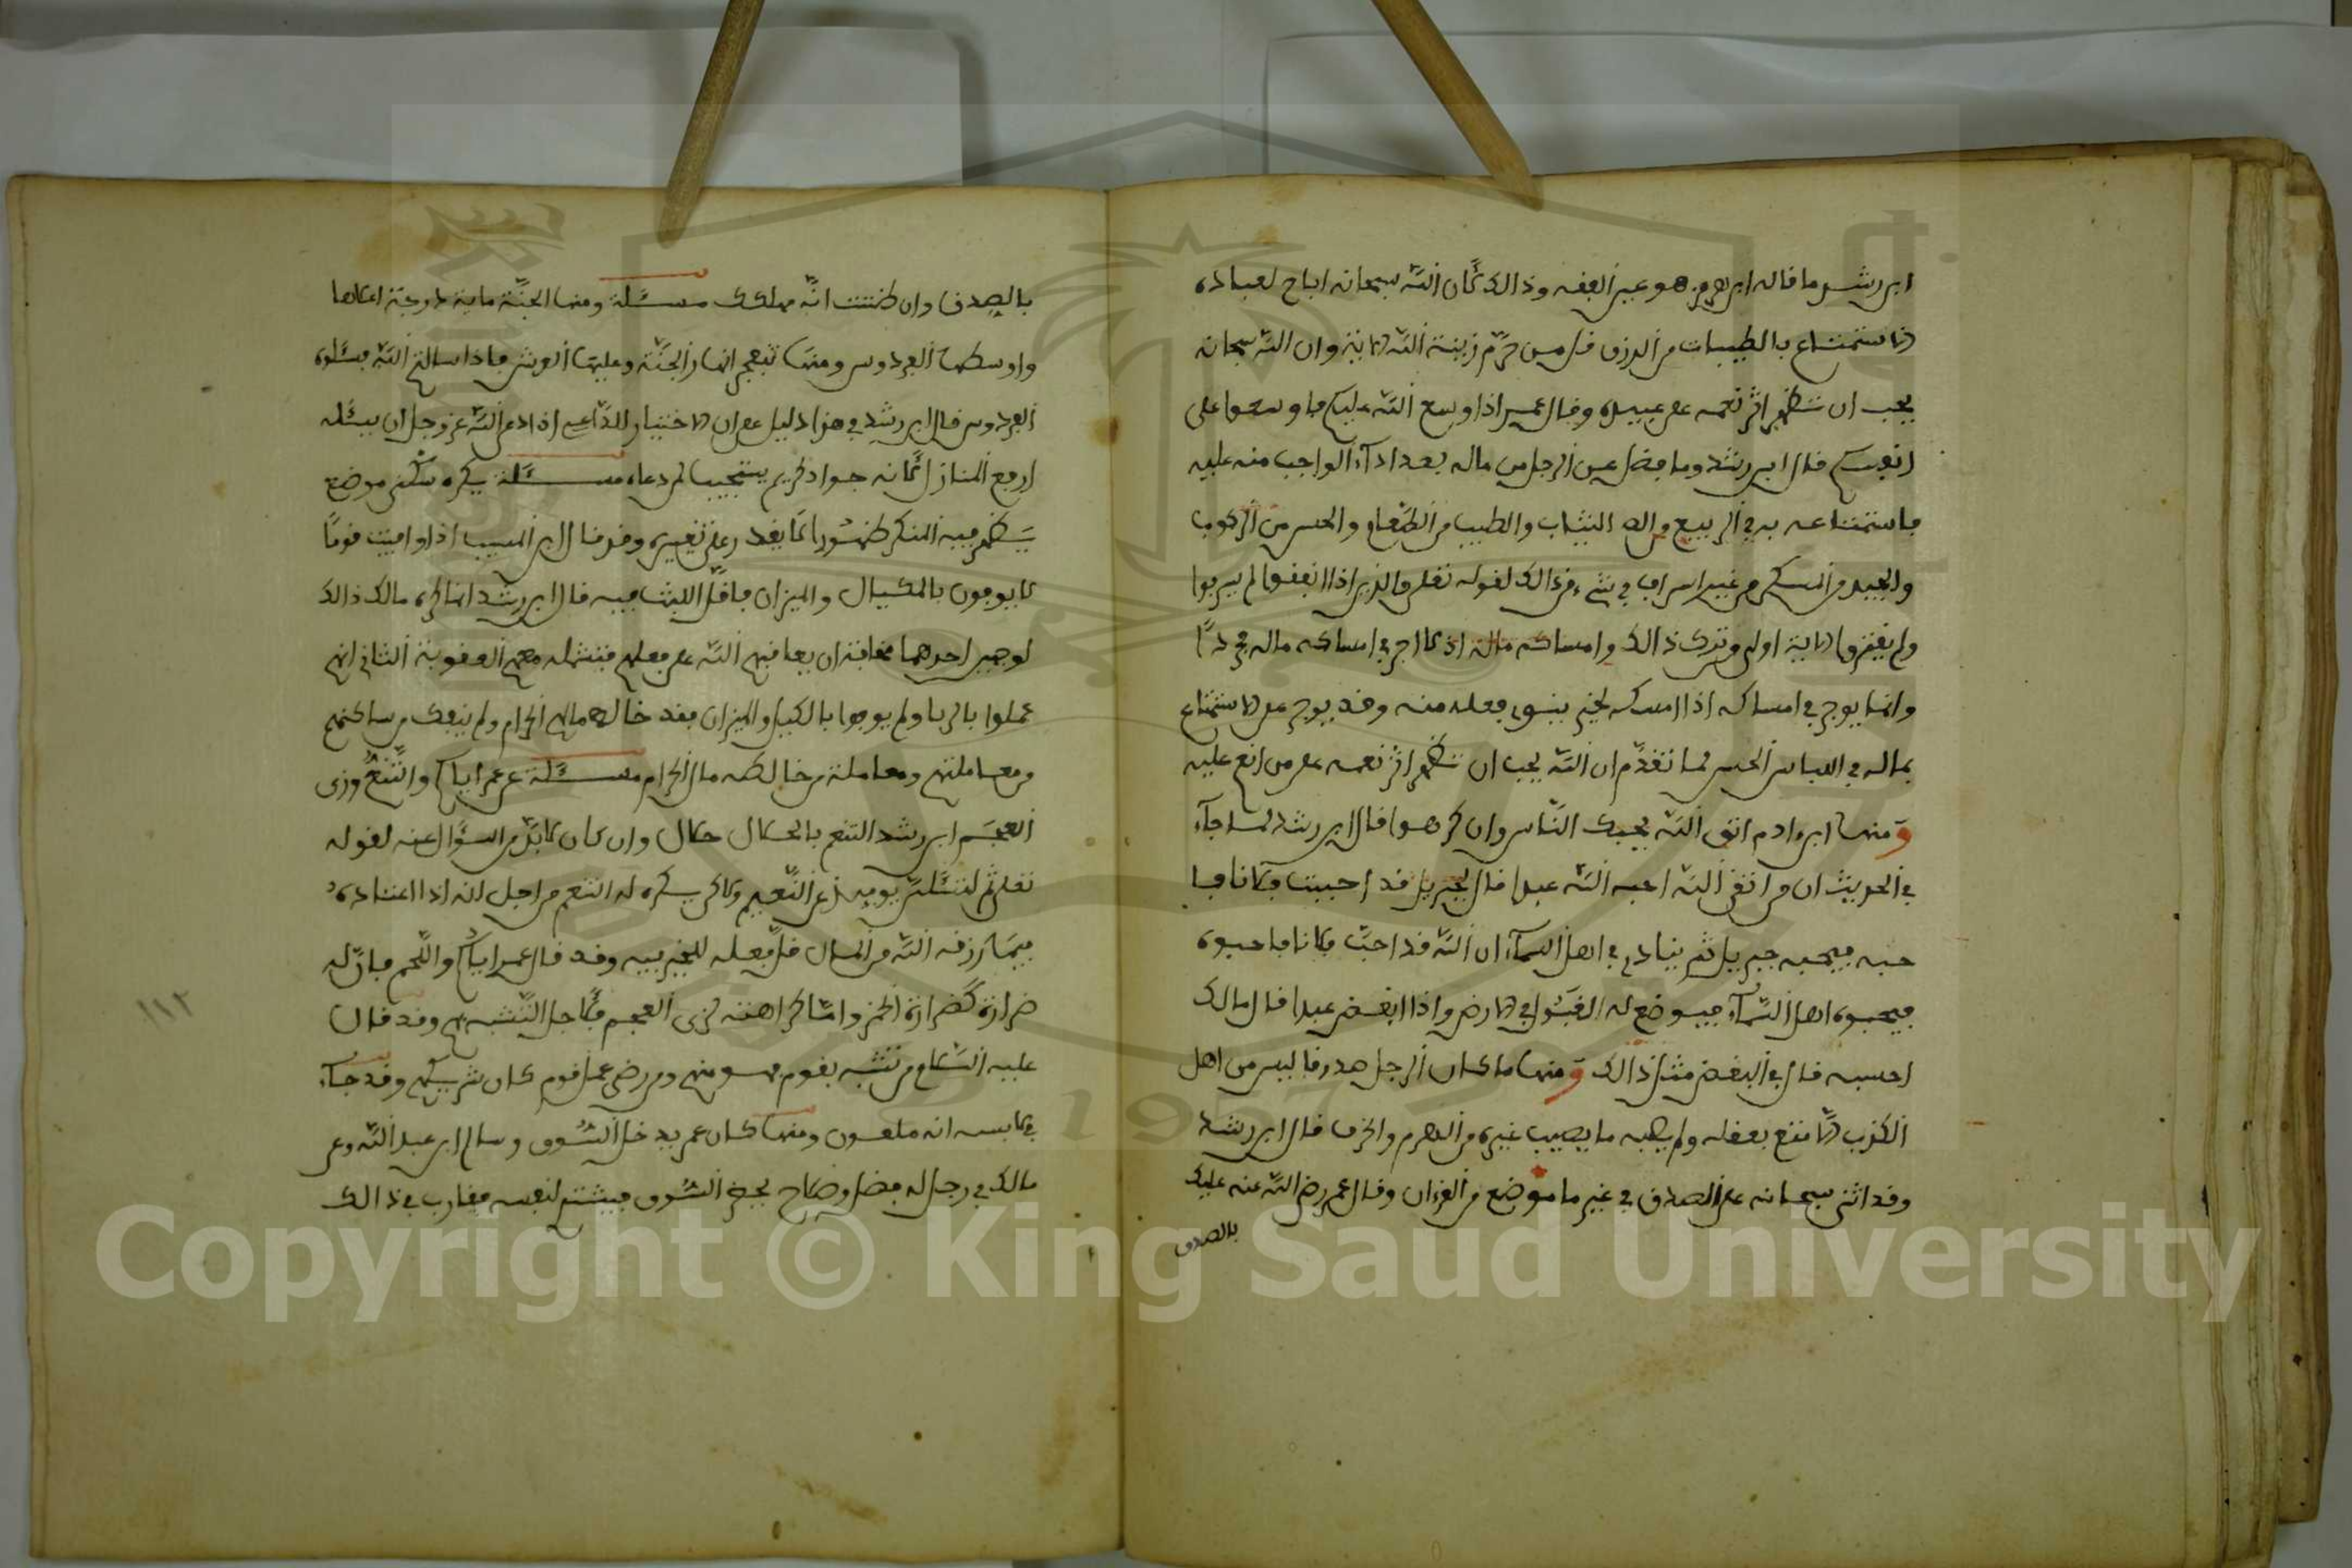 ابن رشد ما قاله ابن هرمز هو عين الفقه وذالك لأن الله سبحانه اباح لعباده
الاستمتاع بالطيبات من الرزق قل من حرم زينة الله الاية وان الله سبحانه
يحب ان تظهر اثر نعمه على عبيده وقال عمر اذا وسع الله عليكم فاوسعوا على
انفسكم قال ابن رشد وما فضل عن الرجل من ماله بعد اداء الواجب منه عليه
فاستمتاعه به في الرفيع من الثياب والطيب من الطعام والحسن من الركوب
والجيد من المسكن من غير اسراف في شيء من ذالك لقوله تعلى والذين اذا انفقوا لم يسرفوا
ولم يقتروا الاية اولى من ترك ذالك وامساكه ماله اذ لا اجر في امساكه ماله مجردا
وانما يوجر في امساكه اذا امسكه لخير ينوي فعله منه وقد يوجر على الاستمتاع
بماله في اللباس الحسن لما تقدم ان الله يحب ان تظهر اثر نعمه على من انعم عليه
ومنها ابن ءادم اتق الله يحبك الناس وان كرهوا قال ابن رشد لما جاء
في الحديث ان من اتقى الله احبه الله عبدا قال لجبريل قد احببت فلانا فا
حبه فيحبه جبريل ثم ينادي في اهل السماء ان الله قد احب فلانا فاحبوه
فيحبوه اهل السماء فيوضع له القبول في الارض واذا ابغض عبدا قال مالك
احسبه قال في البغض مثل ذالك ومنها ما كان الرجل صدوقا ليس من اهل
الكذب الا متع بعقله ولم يصبه ما يصيب غيره من الهرم والخرف قال ابن رشد
وقد اثنى سبحانه على الصدق في غير ما موضع من القرءان وقال عمر رضي الله عنه عليك
بالصدق
بالصدق وان ظننت انه مهلكك مسئلة ومنها الجنة ماية درجة اعلاها
واوسطها الفردوس ومنها تنفجر انهار الجنة وعليها العرش فاذا سالتم الله فسئلوه
الفردوس قال ابن رشد في هذا دليل على ان الاختيار للداعي اذا دعى الله عز وجل ان يسئله
ارفع المنازل لانه جواد كريم يستجيب لمن دعاه مسئلة يكره سكنى موضع
يظهر فيه المنكر ظهورا لا يقدر على تغييره وقد قال ابن المسيب اذا وافيت قوما
لا يوفون بالمكيال والميزان فاقل اللبث فيه قال ابن رشد انما كره مالك ذالك
لوجهين احدهما مخافة ان يعاقبهم الله على فعلهم فتشمله معهم العقوبة الثاني انهم
عملوا بالربا ولم يوفوا بالكيل والميزان فقد خالط مالهم الحرام ولم ينفك من ساكنهم
من معاملتهم ومعاملة من خالطه مال الحرام مسئلة عن عمر اياكم والتنعم وزي
العجم ابن رشد التنعم بالحلال حلال وان كان لا بد من السؤال عنه لقوله
تعلى ثم لتسئلن يوميذ عن النعيم ولاكن يكره له التنعم من اجل انه اذا اعتاده
فيما رزقه الله من المال قل فعله للخير فيه وقد قال عمر اياكم واللحم فان له
ضراوة كضراوة الخمر واما كراهته لزي العجم فلأجل التشبه بهم وقد قال
عليه السلام من تشبه بقوم فهو منهم ومن رضي عمل قوم كان شريكهم وقد جاء
في لابسه انه ملعون ومنها كان عمر يدخل السوق وسالم ابن عبد الله وعن
مالك في رجل له فضل وصلاح يخرج السوق فيشتري لنفسه فيقارب في ذالك
١١٢
Copyright © King Saud University
1957